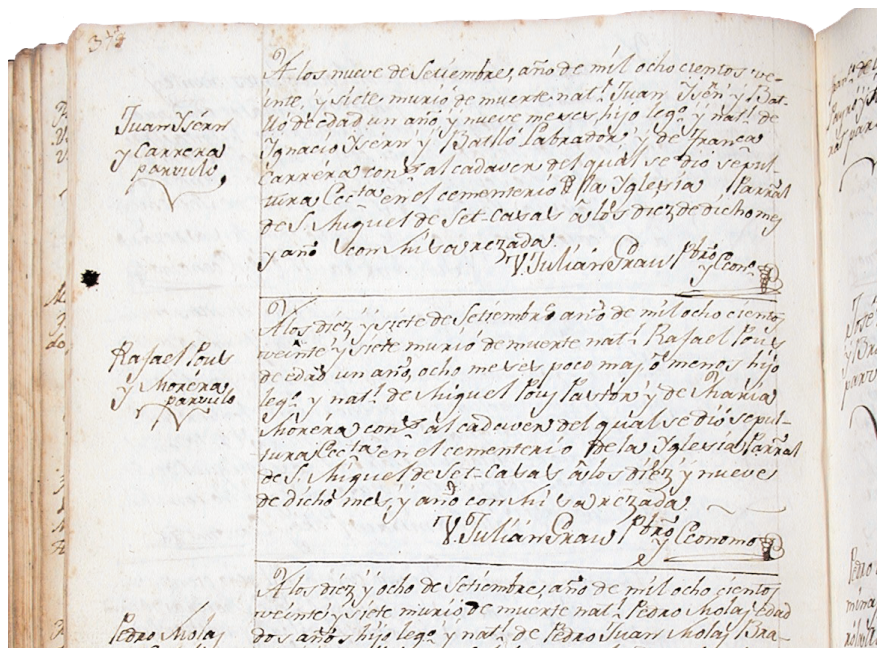 374
Juan Isérn
y Carrera
parvulo,
A los nueve de Setiembre, año de mil ocho cientos ve-
inte, y siete murió de muerte nat.l Juan Isérn y Bat-
lló de edad un año y nueve meses, hijo leg.o y nat.l de
Ignacio Isérn y Batlló Labrador y de Franca
Carréra al cadaver del qual se dió sepul-
tura Eccta en el cementerio de la Yglesia Parral
de S. Miguel de Set-casas â los diez de dicho mes
y año con Misa rezada.
V. Julián Grau Pbro y Econ.o
Rafael Pous
y Moréra
parvulo
A los diez y siete de Setiembre año de mil ocho cientos
veinte y siete murió de muerte nat.l Rafael Pous
de edad un año, ocho meses poco mas o menos hijo
leg.o y nat.l de Miguel Pous Pastor y de Maria
Moréra al cadaver del qual se dió sepul-
tura Eccta en el cementerio de la Yglesia Parral
de S. Miguel de Set-Casas â los diez y nueve
de dicho mes, y año con Misa rezada.
V. Julián Grau Pbro y Economo
Pedro Molas
A los diez y ocho de Setiembre, año de mil ocho cientos
veinte y siete murió de muerte nat.l Pedro Molas Edad
dos años hijo leg.o y nat.l de Pedro Juan Molas Bra-